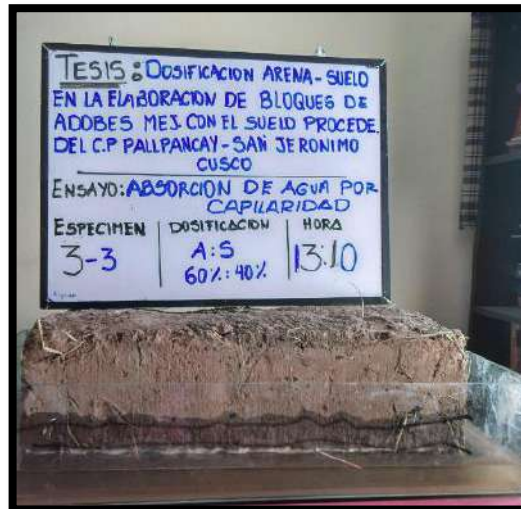 TESIS: DOSIFICACION ARENA - SUELO
EN LA ELABORACION DE BLOQUES DE
ADOBES MEJ. CON EL SUELO PROCEDE.
DEL C.P PALLPANCAY - SAN JERONIMO
CUSCO
ENSAYO: ABSORCION DE AGUA POR
CAPILARIDAD
ESPECIMEN DOSIFICACION HORA
3-3 A:S 13:10
60%:40%